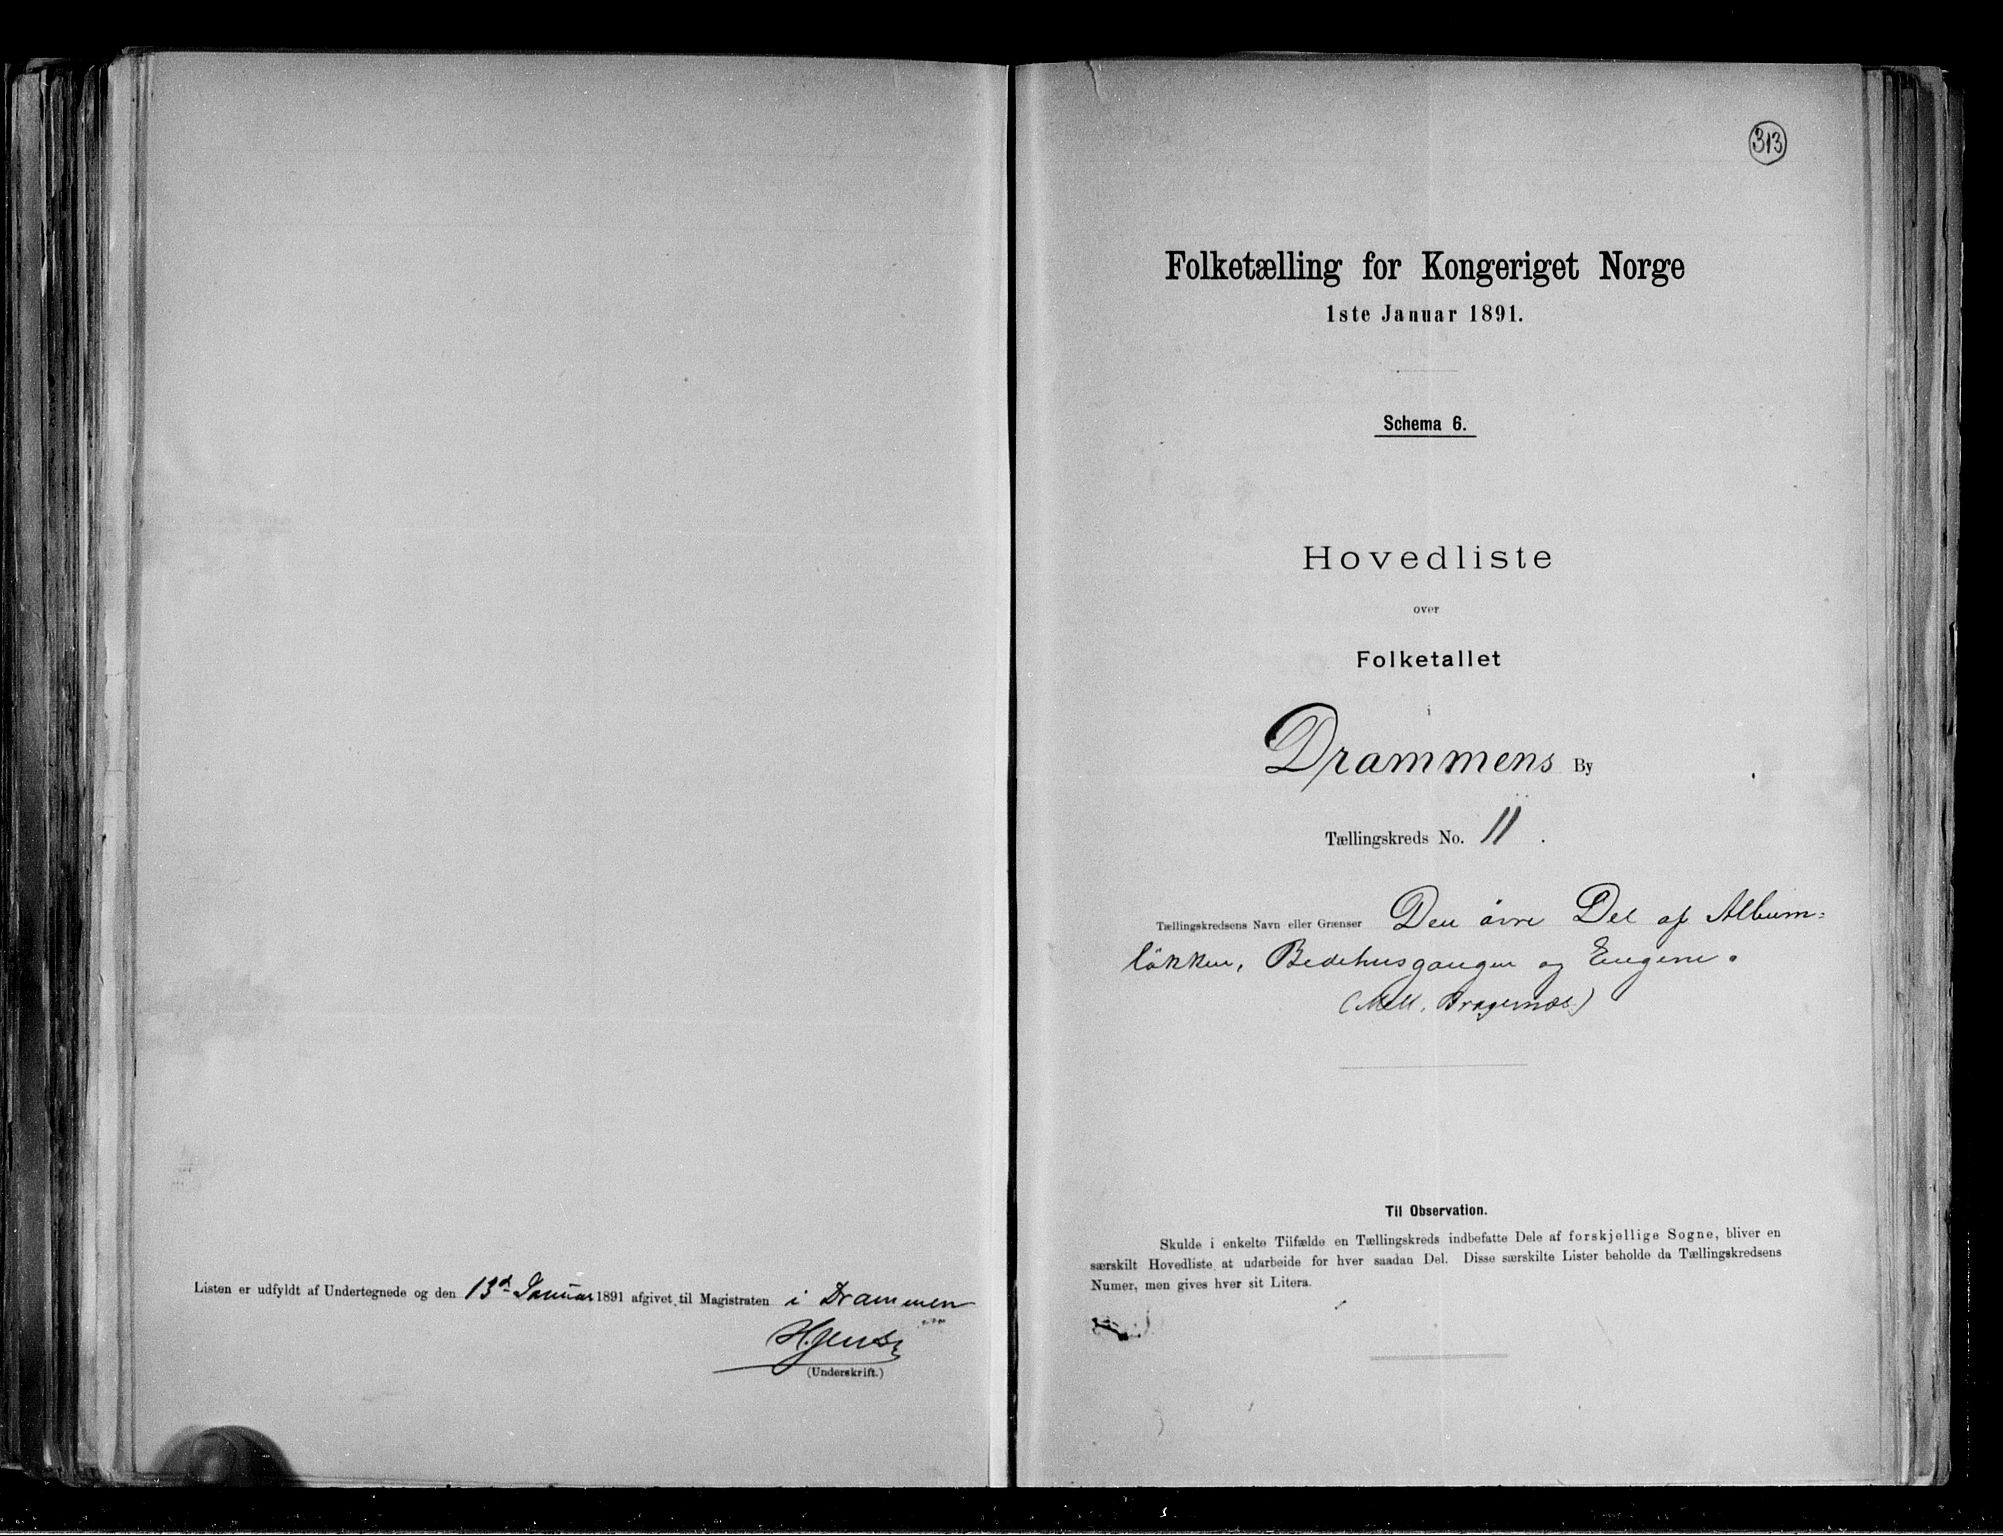 Listen er udfyldt af Undertegnede og den 13d Januar 1891 afgivet til Magistraten i Drammen
(Underskrift.)
313
Folketælling for Kongeriget Norge
1ste Januar 1891.
Schema 6.
Hovedliste
over
Folketallet
i
Drammens By
Tællingskreds No. 11.
Tællingskredsens Navn eller Grænser Den øvre Del af Album=
løkken, Bedehusgangen og Engene.
(Mell. Bragernæs)
Til Observation.
Skulde i enkelte Tilfælde en Tællingskreds indbefatte Dele af forskjellige Sogne, bliver en
særskilt Hovedliste at udarbeide for hver saadan Del. Disse særskilte Lister beholde da Tællingskredsens
Numer, men gives hver sit Litera.